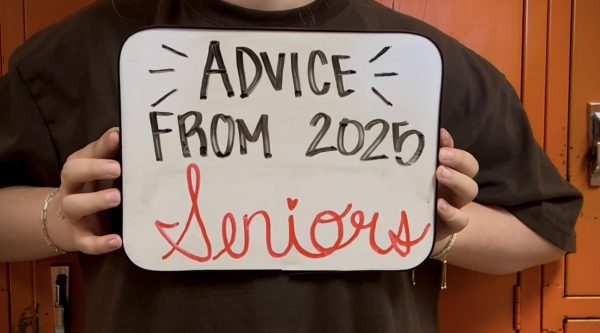 ADVICE
FROM 2025
Seniors